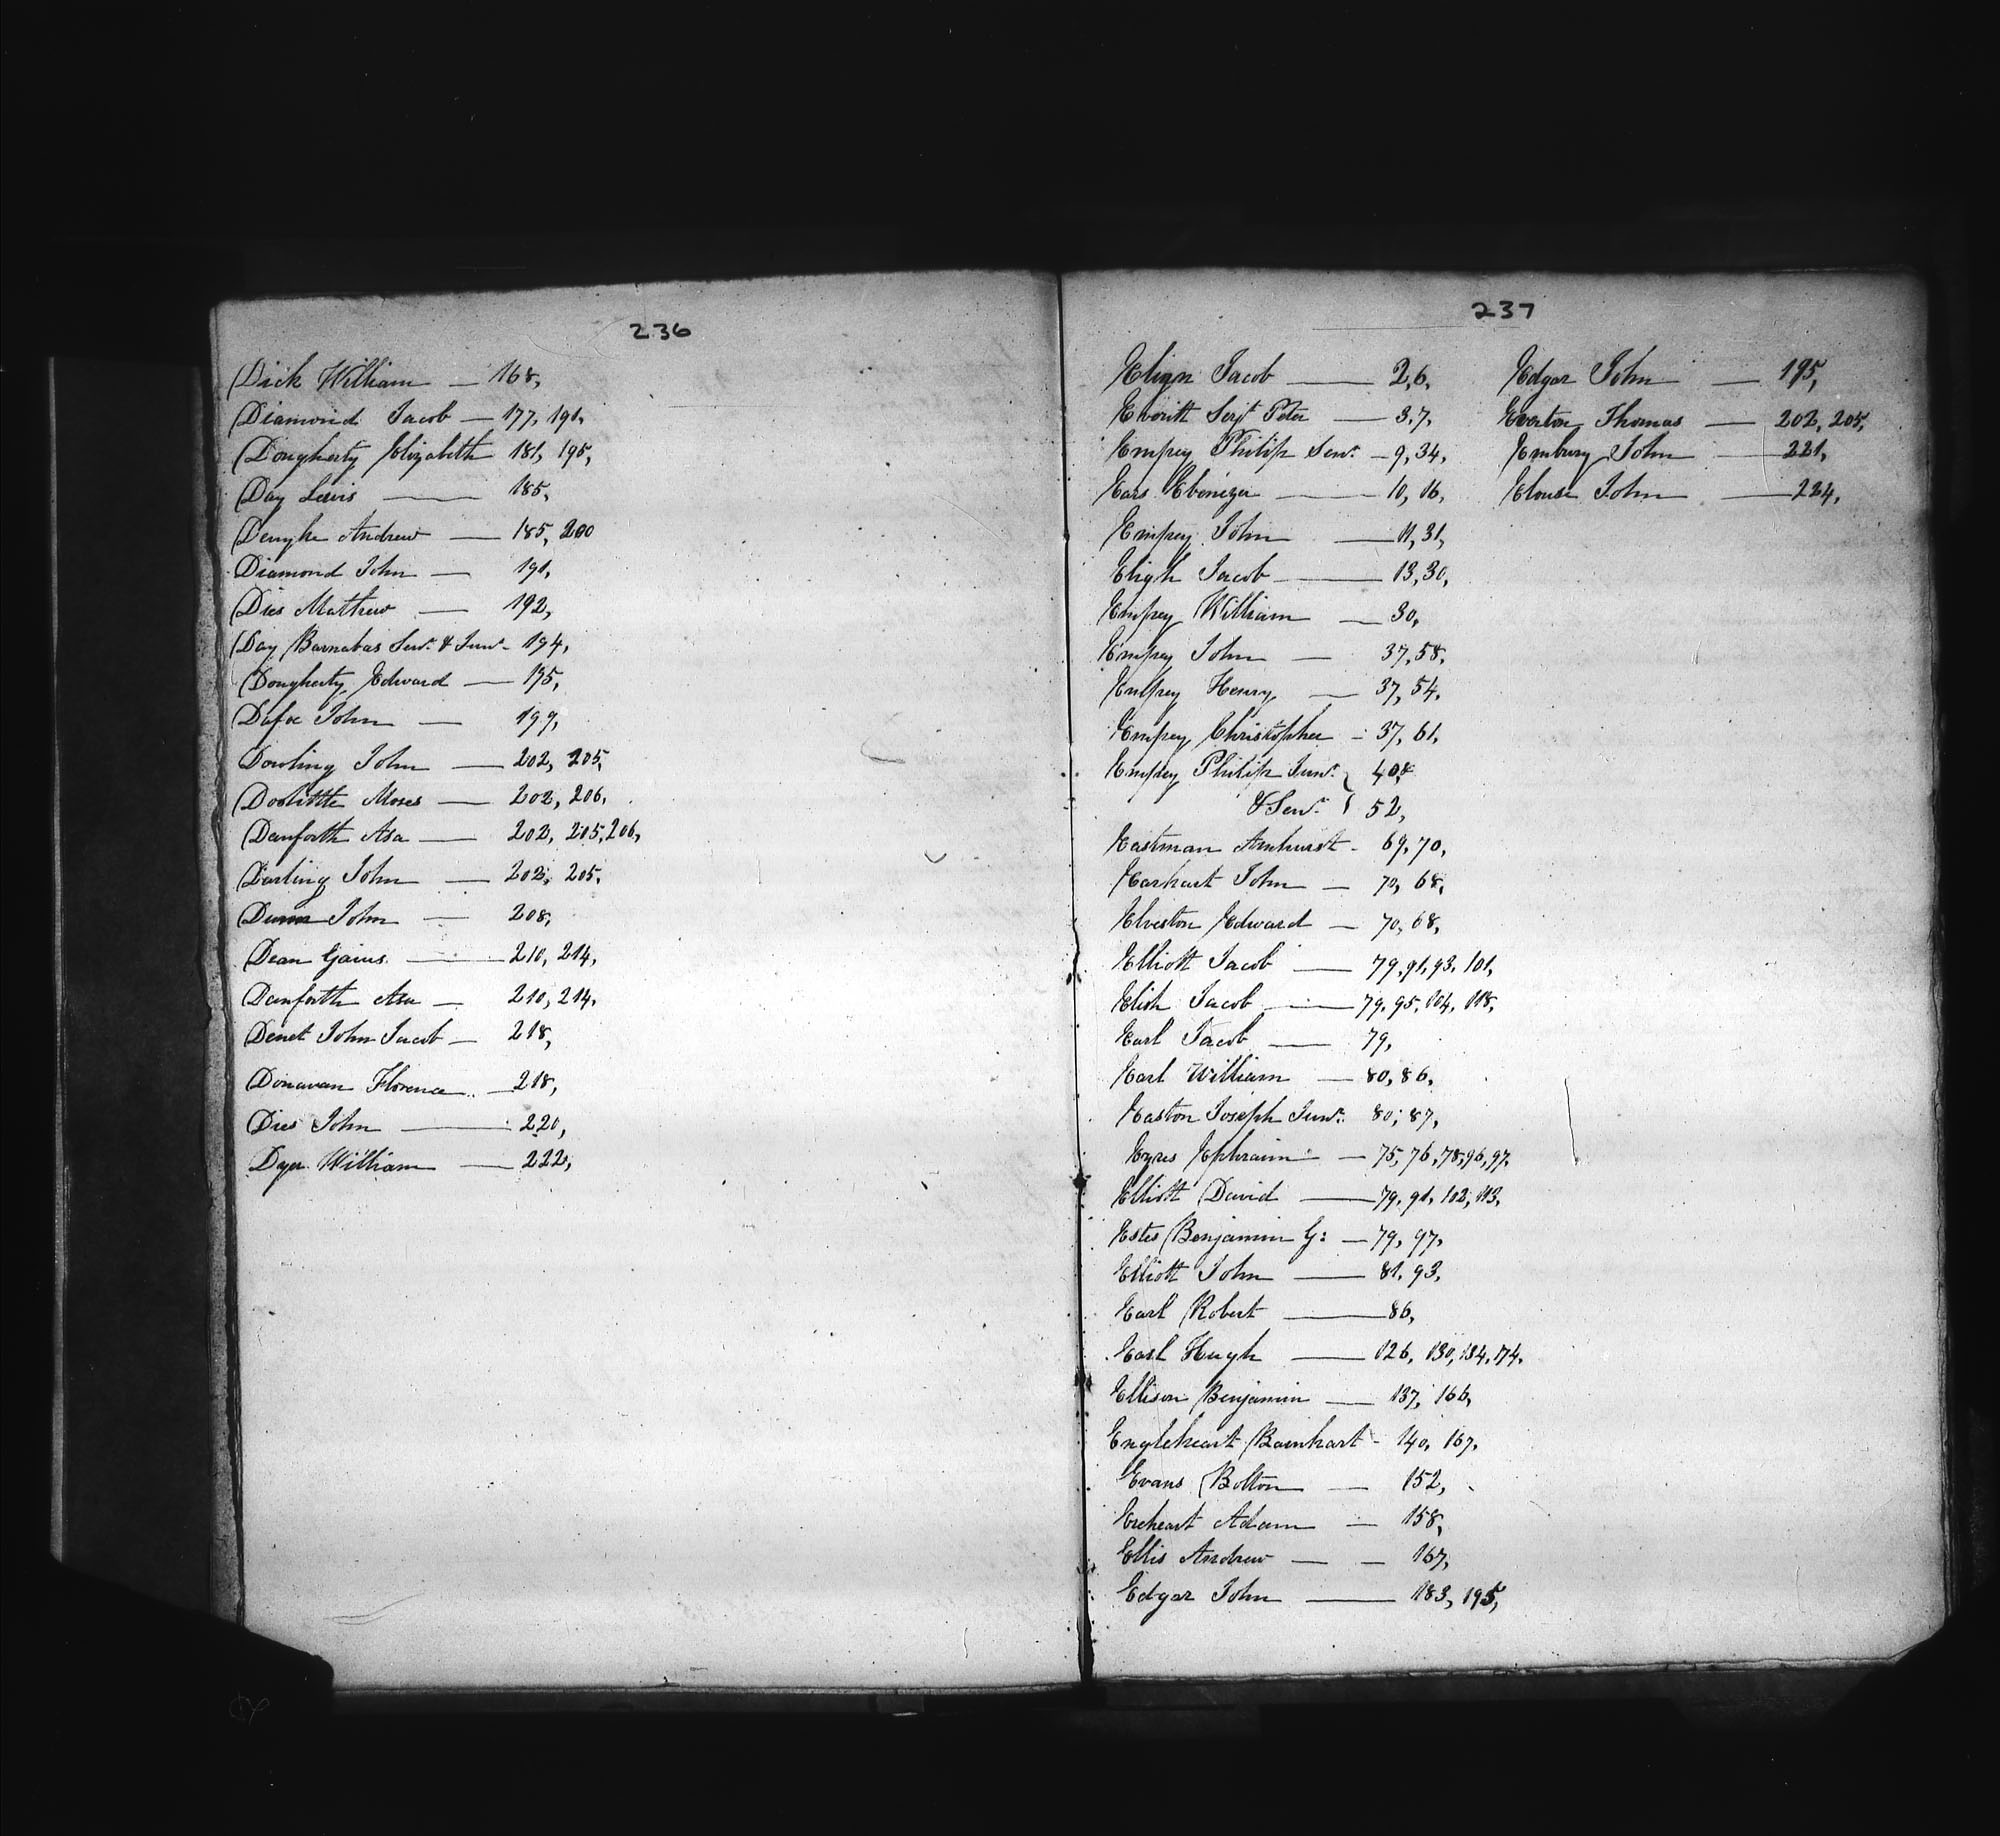 236
Dick William — 168,
Diamond Jacob — 177, 191,
Dougherty Elizabeth 181, 195,
Day Lewis — 185,
Denyke Andrew — 185, 200
Diamond John — 191,
Dies Mathew — 192,
Day Barnabas Senr. & Junr. - 194,
Dougherty Edward — 195,
Dafoe John — 199,
Dowling John — 202, 205,
Doolittle Moses — 202, 206,
Danforth Asa — 202, 205, 206,
Darling John — 202, 205,
John — 208,
Dean Gaius — 210, 214,
Danforth Asa — 210, 214,
Denet John Jacob — 218,
Donavan Florence — 218,
Dies John — 220,
Dyer William — 222,
237
Jacob — 2, 6,
Everitt Serjt Peter — 3, 7,
Empey Philip Senr. — 9, 34,
Ears Ebenezer — 10, 16,
Empey John — 11, 31,
Eligh Jacob — 13, 30,
Empey William — 30,
Empey John — 37, 58,
Empey Henry — 37, 54,
Empey Christopher - 37, 61,
Empey Philip Junr. } 40,&
& Senr. } 52,
Eastman Amhurst - 69, 70,
Earhart John — 70, 68,
Elveston Edward — 70, 68,
Elliott Jacob — 79, 91, 93, 101,
Elish Jacob — 79, 95, 104, 118,
Earl Jacob — 79,
Earl William — 80, 86,
Easton Joseph Junr. 80, 87,
Eyres Ephraim — 75, 76, 78, 96, 97,
Elliott David — 79, 91, 102, 113,
Estes Benjamin G: — 79, 97,
Elliott John — 81, 93,
Earl Robert — 86,
Earl Hugh — 126, 130, 134, 174,
Ellison Benjamin — 137, 166,
Engleheart Barnhart - 140, 167,
Evans Bolton — 152,
Ereheart Adam — 158,
Ellis Andrew — — 167,
Edgar John — 183, 195,
Edgar John — 195,
Everton Thomas — 202, 205,
Embury John — 221,
Elouse John — 224,